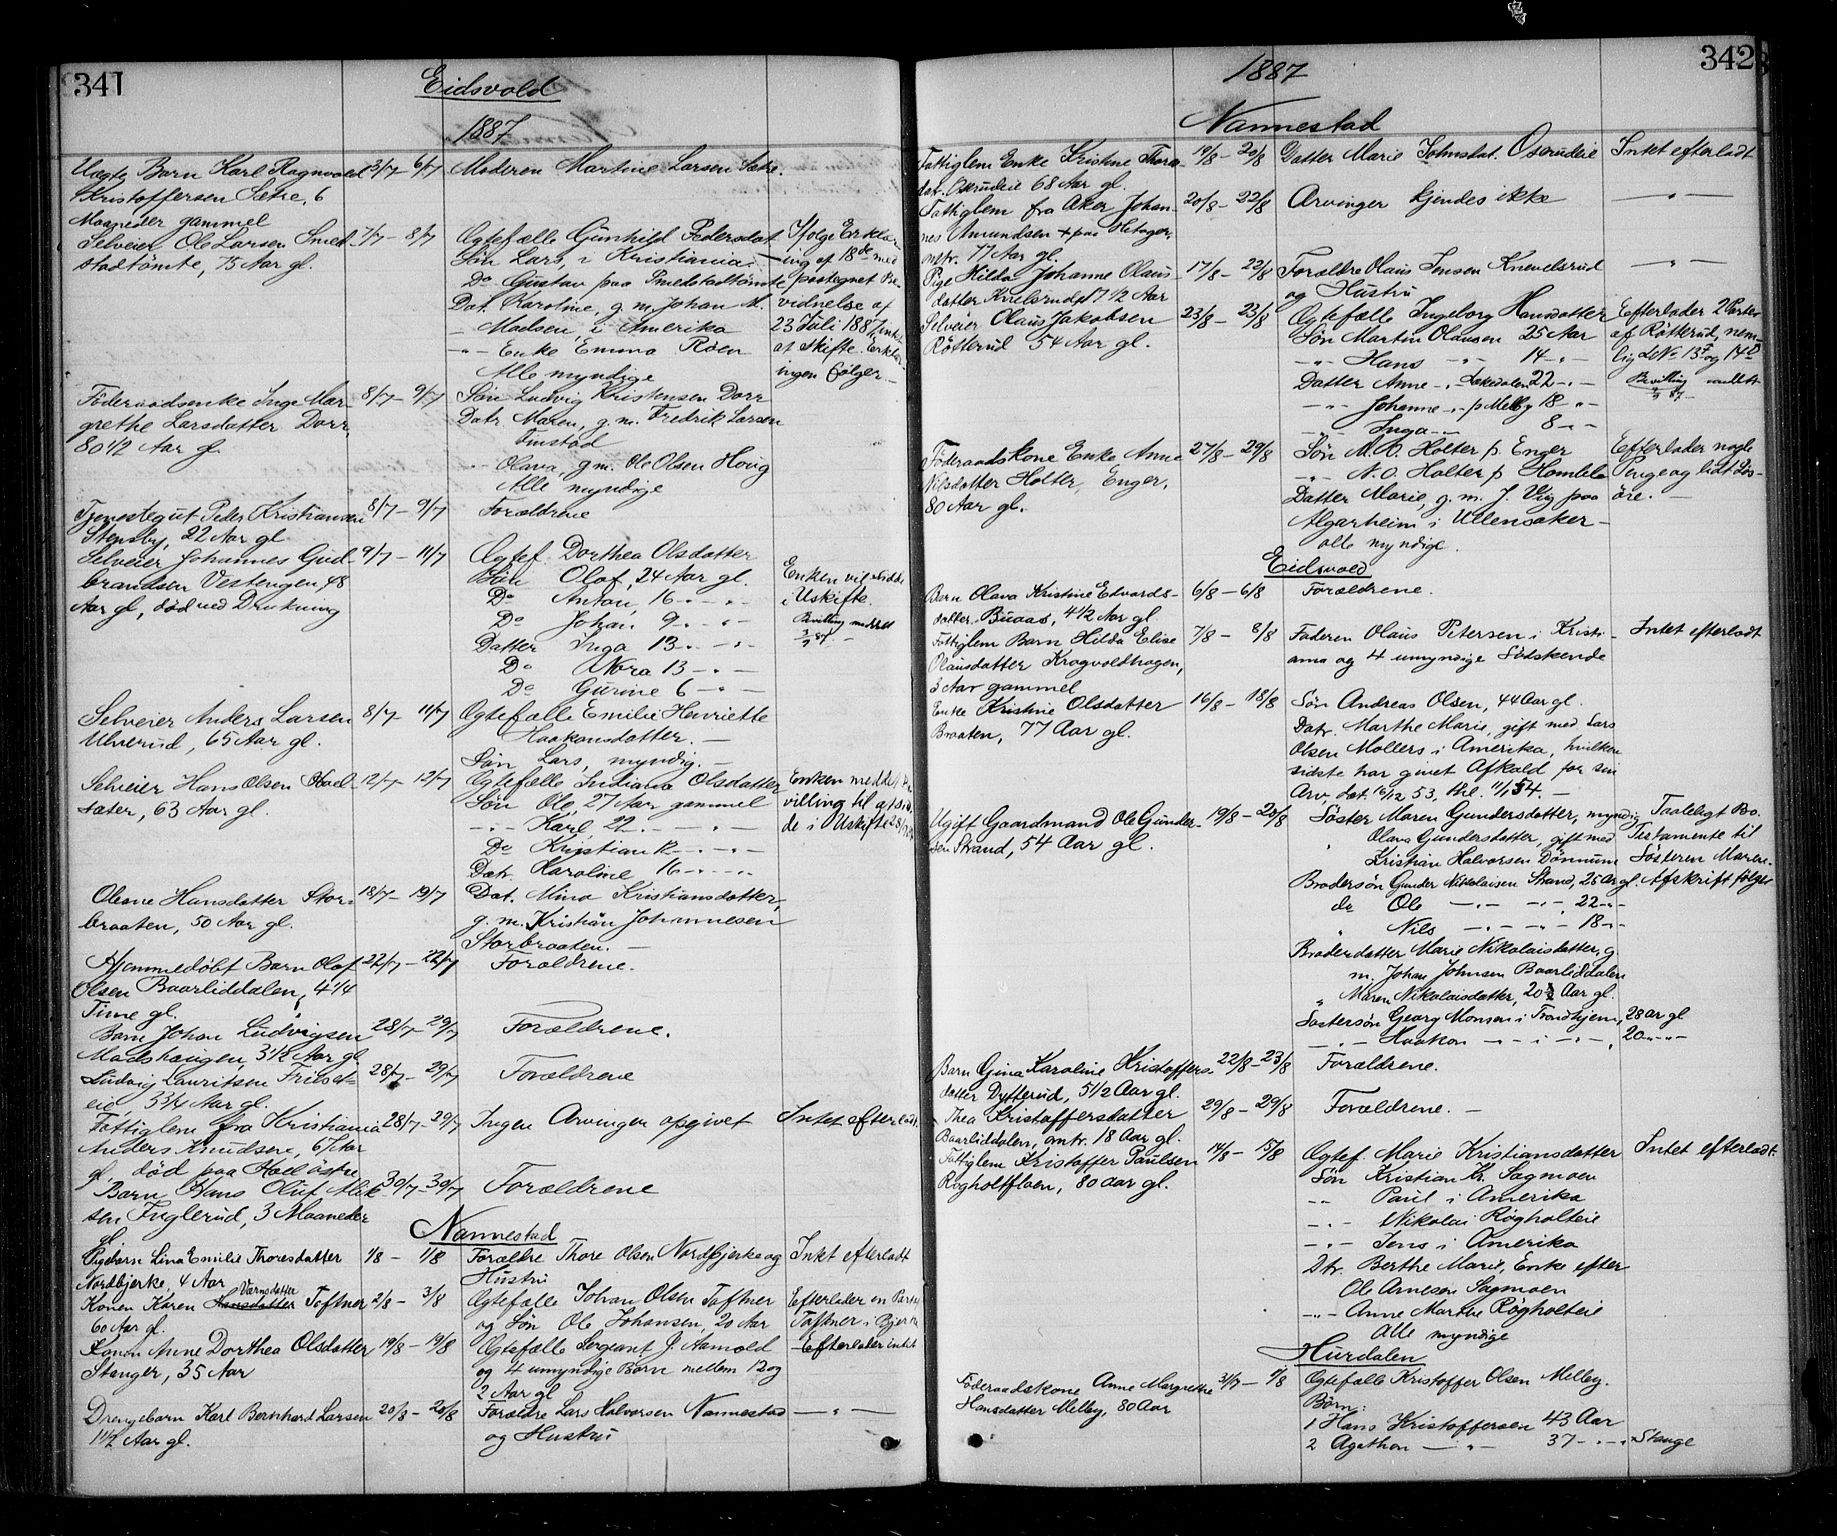 341
Eidsvold
1887
Uægte Barn Karl Ragnvald 3/7 - 6/7 Moderen Martine Larsen Sætre
Kristoffersen Sætre, 6
Maaneder gammel
Selveier Ole Larsen Smed- 7/7 - 8/7 Ægtefælle Gunhild Pedersdat. Ifølge Erklæ-
stadtömte, 75 Aar gl. Søn Lars, i Kristiania ing af 18de med
Do Gustav paa Smedstadtömte paategnet Be-
Dat. Karoline, g.m. Johan M. vidnelse af
Madsen, i Amerika 23 Juli 1887 intet
-"- Enke Emma Röen at skifte. Erklær-
Alle myndige ingen følger
Föderaadsenke Inge Mar- 8/7 - 9/7 Søn Ludvig Kristensen Dorr
grethe Larsdatter Dorr, Datr Maren, g.m. Fredrik Larsen
80 1/2 Aar gl. Finstad
-"- Olava, g.m. Ole Olsen Houg
Alle myndige
Tjenestegut Peder Kristiansen 8/7 - 9/7 Forældrene
Stensby, 22 Aar gl
Selveier Johannes Gud- 9/7 - 11/7 Ægtef. Dorthea Olsdatter
brandsen Vestengen, 48 Søn Olaf, 24 Aar gl. Enken vil sidde
Aar gl, död ved Drukning Do Anton, 16 -"- -"- i Uskifte.
Do Johan 9 -"- -"- Bevilling meddelt
Datter Inga 13 -"- -"- 3/9 87
Do Nora 13 -"-
Do Gurine 6 -"-
Selveier Anders Larsen 8/7 - 11/7 Ægtefælle Emilie Henriette
Ulverud, 65 Aar gl. Haakonsdatter.
Søn Lars, myndig.
Selveier Hans Olsen Hoel- 12/7 - 12/7 Ægtefælle Indiana Olsdatter Enken meddelt Be-
sæter, 63 Aar gl. Søn Ole, 27 Aar gammel villing til at sid-
-"- Karl, 22 -"- -"- de i Uskifte 28/
Do Kristian -"- -"-
Datr. Karoline 16 -"- -"-
Olesne Hansdatter Stor- 18/7 - 19/7 Dat. Mina Kristiansdatter,
braaten, 50 Aar gl. g.m. Kristian Johannesen
Storbraaten.
Hjemmedøbt Barn Olaf 22/7 - 22/7 Forældrene.
Olsen Baarliddalen, 4 1/4
Time gl.
Barn Johan Ludvigsen 28/7 - 29/7 Forældrene.
Madshaugen, 3 1/2 Aar gl
Ludvig Lauritsen 28/7 - 29/7 Forældrene
eie, 3 3/4 Aar gl.
Fattiglem fra Kristiania 28/7 - 29/7 Ingen Arvinger opgivet Intet efterladt.
Anders Knudsen, 67 Aar
gl, död paa Hoel östre
Barn Hans Oluf 30/7 - 30/7 Forældrene
sen Fuglerud, 3 Maaneder
gl
Nannestad
Pigebarn Lina Emilie Thoresdatter 1/8 - 1/8 Forældre Thore Olsen Nordbjerke og Intet efterladt
Nordbjerke, 4 Aar Hustru
Værnsdatter
Konen Karen Hansdatter Toftner 2/8 - 3/8 Ægtefælle Johan Olsen Toftner Efterlader en Part
60 Aar gl. og Søn Ole Johansen, 20 Aar Toftner i
Konen Anne Dorthea Olsdatter 19/8 - 19/8 Ægtefælle Sergeant J. Aamold Efterlader intet
Stanger, 35 Aar og 4 umyndige Børn mellem 12 og
2 Aar gl
Drengebarn Karl Bernhard Larsen 20/8 - 20/8 Forældre Lars Halvorsen Nannestad -"-
1 1/2 Aar gl. og Hustru
342
1887
Nannestad
Fattiglem Enke Kristine Thoras- 19/8 - 20/8 Datter Marie Johnsdat. Oserudeie Intet efterladt
datr. Oserudeie 68 Aar gl.
Fattiglem fra Aker Johan- 20/8 - 22/8 Arvinger kjendes ikke -"-
nes Amundsen + paa
omtr. 77 Aar gl.
Pige Hilda Johanne Olaus- 17/8 - 22/8 Forældre Olaus Jensen Kneelsrud -"-
datter Knelsrud 17 1/2 Aar og Hustru
Selveier Olaus Jakobsen 23/8 - 23/8 Ægtefælle Ingeborg Hansdatter Efterlader 2 Parter
Røtterud 54 Aar gl. Søn Martin Olausen 25 Aar af Røtterud, nem-
-"- Hans -"- 14 -"- lig LNo 137 og 142
Datter Anne -"- 22 -"- Bevilling meddelt
-"- Johanne -"- p Melby 18 -"- 87
-"- Inga -"- 8 -"-
Föderaadskone Enke Anne 27/8 - 29/8 Søn M. O. Holter p. Enger Eefterlader nogle
Nilsdatter Holter, Enger, -"- N. O. Holter p Homble Penge og lidt Løs-
80 Aar gl. Datter Marie, g.m. J. Vig paa öre.
Algarheim i Ullensaker
alle myndige.
Eidsvold
Barn Olava Kristine Edvards- 6/8 - 6/8 Forældrene.
datter Buaas, 4 1/2 Aar gl
Fattiglem Barn Hilda Elise 7/8 - 8/8 Faderen Olaus Petersen i Kristi- Intet efterladt
Olausdatter Krogvoldhagen, ania og 4 umyndige Södskende
3 Aar gammel
Enke Kristine Olsdatter 16/8 - 18/8 Søn Andreas Olsen, 44 Aar gl.
Braaten, 77 Aar gl. Datr. Marthe Marie, gift med Lars
Olsen Mollers i Amerika, hvilken
sidste har givet Afkald for sin
Arv, dat. 16/12 53, thl. 11/1 54.
Ugift Gaardmand Ole Gunder- 19/8 - 20/8 Søster Maren Gundersdatter, myndig Taaleligt Bo.
sen Strand, 54 Aar gl. " Olava Gundersdatter, gift med Testamente til
Kristian Halvorsen Dönnum Søsteren Maren.
Brodersøn Gunder Nikolaisen Strand, 25 ar gl. Afskrift følger
do Ole -"- -"- 22 -"-
" Nils -"- -"- 18 -"-
Broderdatter Marie Nikolaisdatter, g
m. Johan Johnsen Baarliddalen
" Maren Nikolaisdatter, 20 1/2 Aar gl.
Søstersøn Georg Monsen i Trondhjem, 28 ar gl
-"- Haakon -"- i -"-, 20 -"-
Barn Gina Karoline Kristoffers- 22/8 - 23/8 Forældrene.
datter Dytterud, 5 1/2 Aar gl.
" Thea Kristoffersdatter 29/8 - 29/8 Forældrene.
Baarliddalen, omtr. 18 Aar gl.
Fattiglem Kristoffer Paulsen 14/8 - 15/8 Ægtef. Marie Kristiansdatter Intet efterladt.
Rogholtfloen, 80 aar gl. Søn Kristian Kr. Sagmoen
-"- Paul i Amerika
-"- Nikolai Røgholteie
-"- Jens i Amerika
Dtr. Berthe Marie, Enke efter
Ole Arnesen Sagmoen
-"- Anne Marthe Røgholteie
Alle myndige
Hurdalen
Föderaadskone Anne Margrethe 31/7 - 1/8 Ægtefælle Kristoffer Olsen Melby.
Hansdatter Melby, 80 Aar Børn:
1 Hans Kristoffersen 43 Aar
2 Agathon -"- 37 -"- Stange